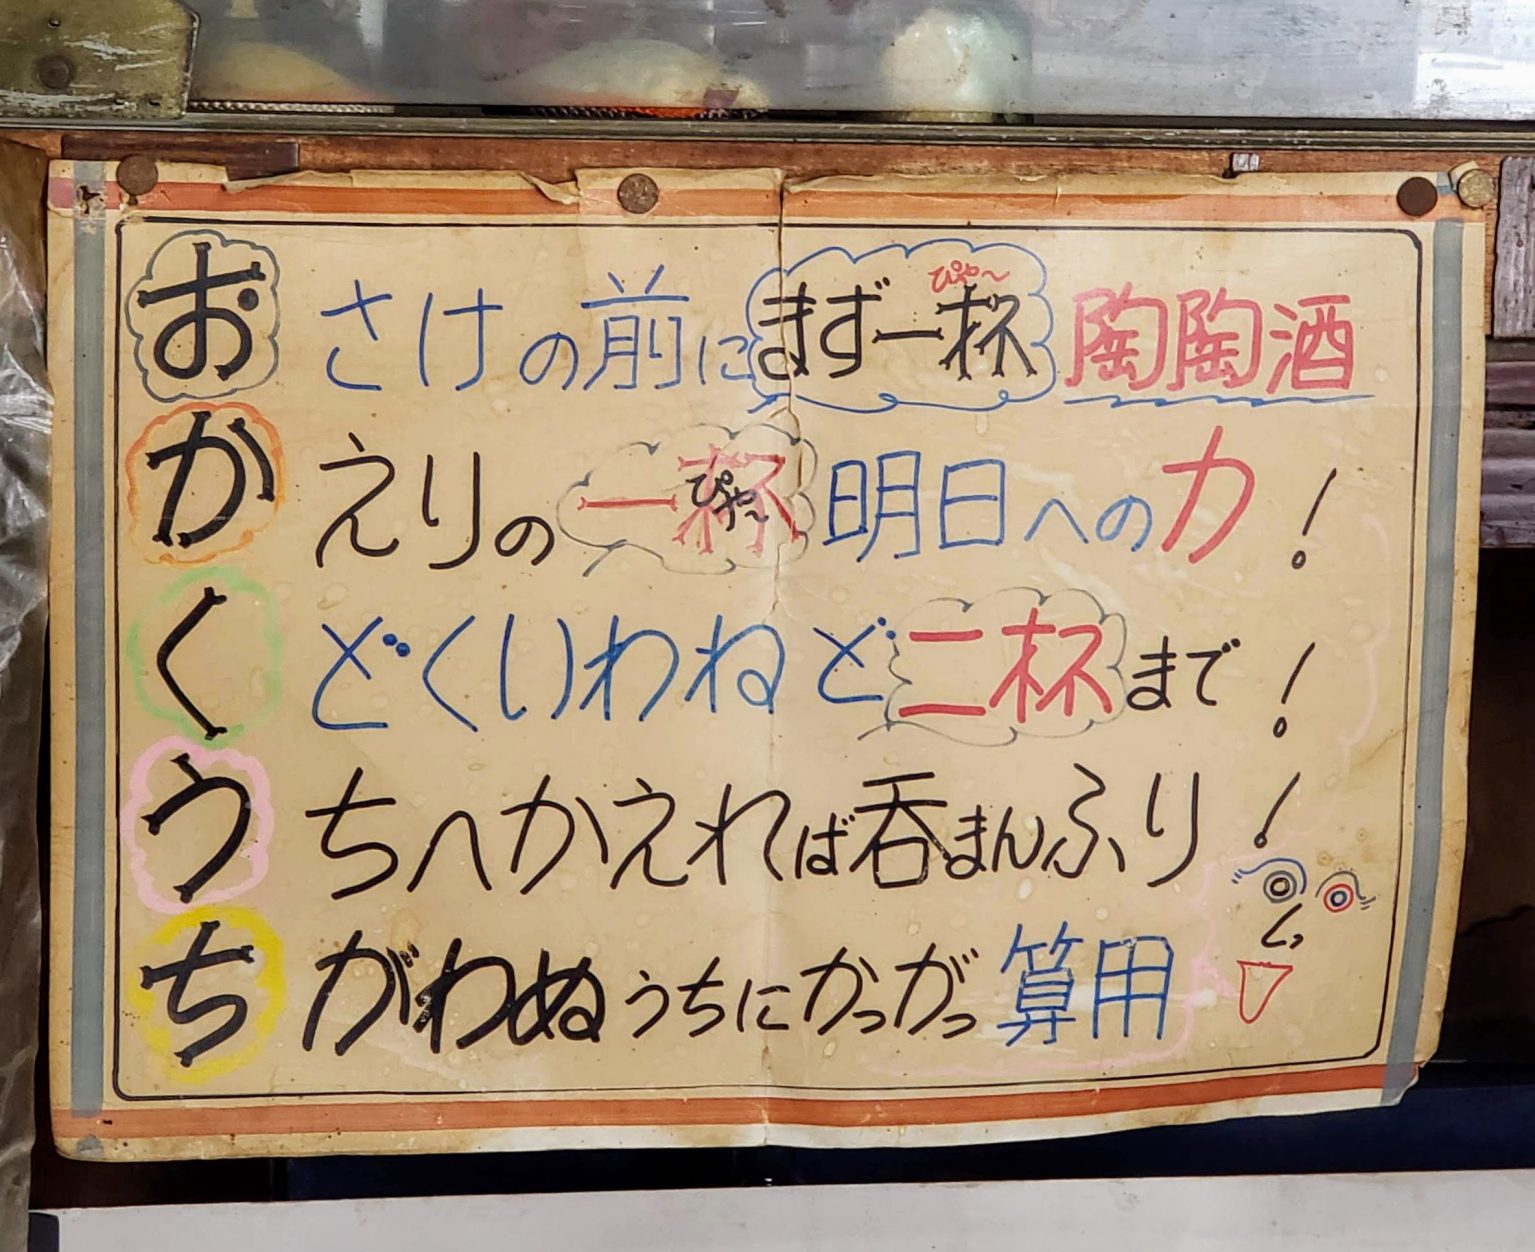 おさけの前にまず一杯ぴゃ〜陶陶酒
かえりの一杯ぴゃ〜明日への力！
くどくいわねど二杯まで！
うちへかえれば呑まんふり！
ちがわぬうちにかっがっ算用